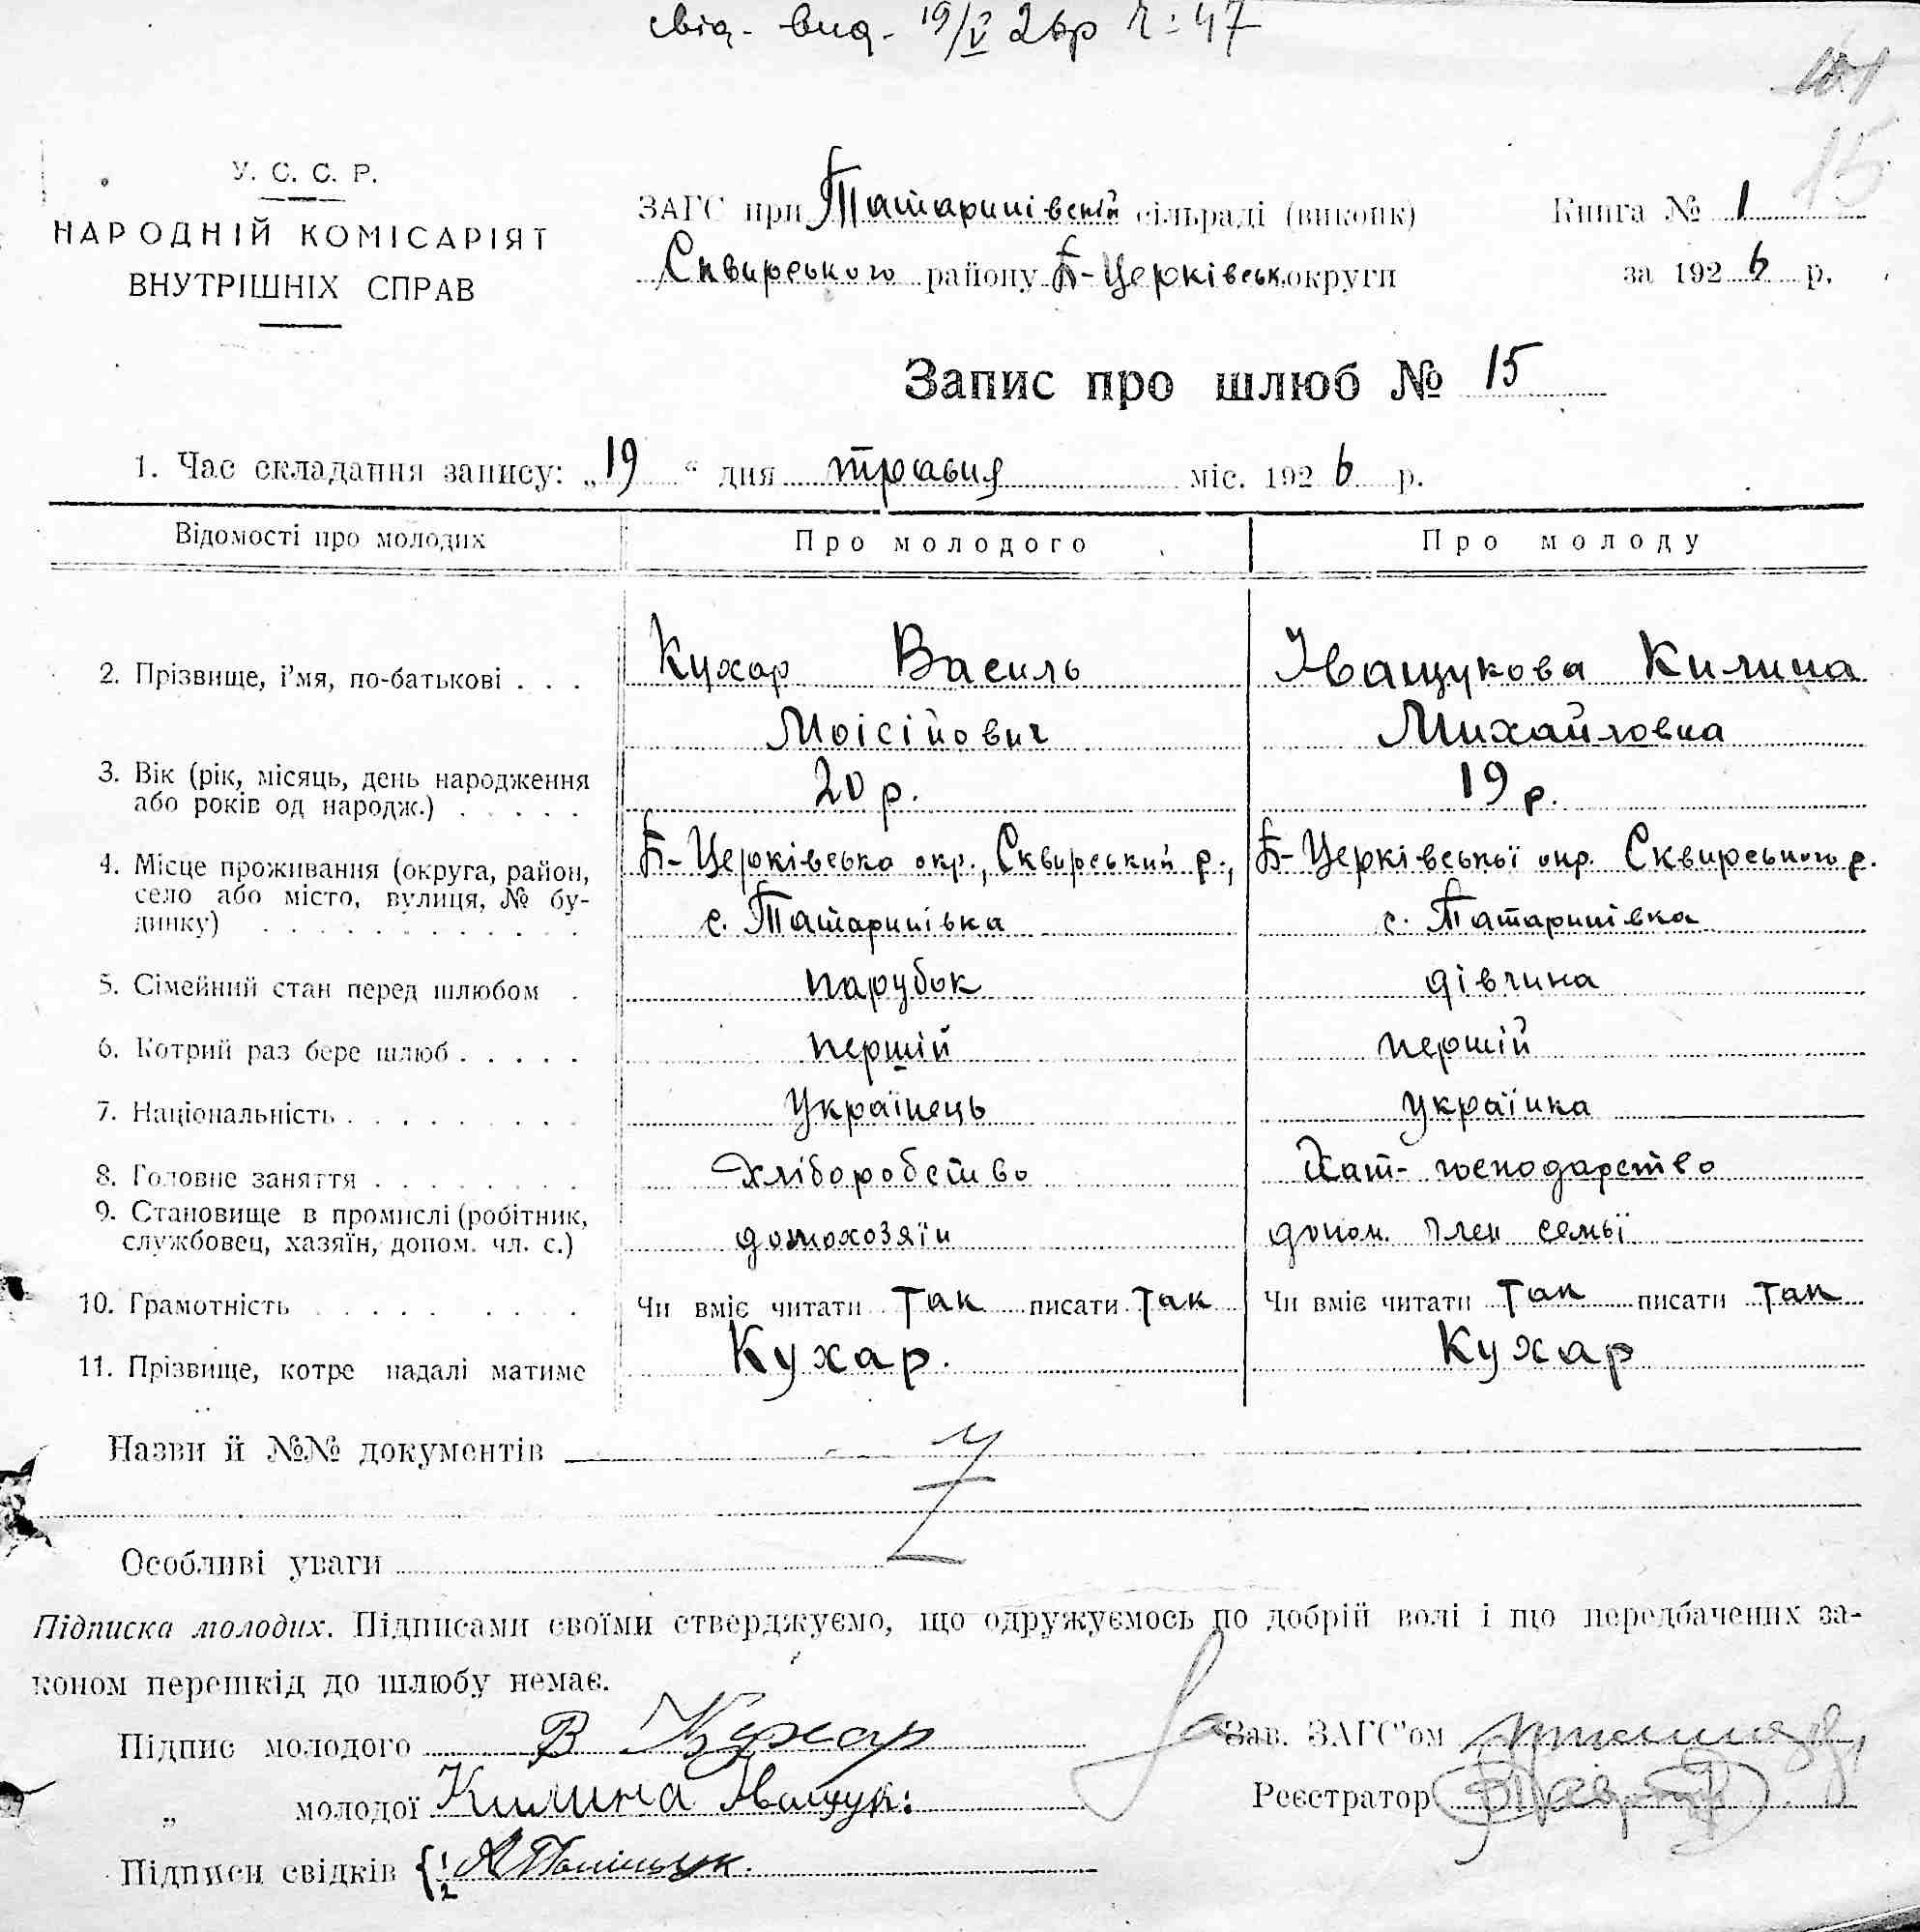 свід. вид. 19/V 26р ч: 47
15
У. С. С. Р.
НАРОДНІЙ КОМІСАРІЯТ
ВНУТРІШНІХ СПРАВ
ЗАГС при Татаринівській сільраді (виконк)
Сквирського району Б-Церківськ. округи
Книга № 1
за 1926 р.
Запис про шлюб № 15
1. Час складання запису: „19“ дня травня міс. 1926 р.
Відомості про молодих Про молодого Про молоду
2. Прізвище, і’мя, по-батькові . . . Кухар Василь Іващукова Килина
Моісійович Михайловна
3. Вік (рік, місяць, день народження
або років од народж.) . . . . . 20 р. 19 р.
4. Місце проживання (округа, район, Б-Церківська окр., Сквирський р., Б-Церківської окр. Сквирського р.
село або місто, вулиця, № бу-
динку) с. Татаринівка с. Татаринівка
5. Сімейний стан перед шлюбом . парубок дівчина
6. Котрий раз бере шлюб . . . . . першій першій
7. Національність . . . . . . . . Українець Українка
8. Головне заняття . . . . . . . хліборобство Хат- господарство
9. Становище в промислі (робітник,
службовец, хазяїн, допом. чл. с.) домохозяїн допом. член семьї
10. Грамотність Чи вміє читати так писати так Чи вміє читати так писати так
11. Прізвище, котре надалі матиме Кухар. Кухар
Назви й №№ документів
Особливі уваги
Підписка молодих. Підписами своїми стверджуємо, що одружуємось по добрій волі і що передбачених за-
коном перешкід до шлюбу немає.
Підпис молодого В Кухар Зав. ЗАГС’ом
„ молодої Килина Іващук: Реєстратор
Підписи свідків { 1
2